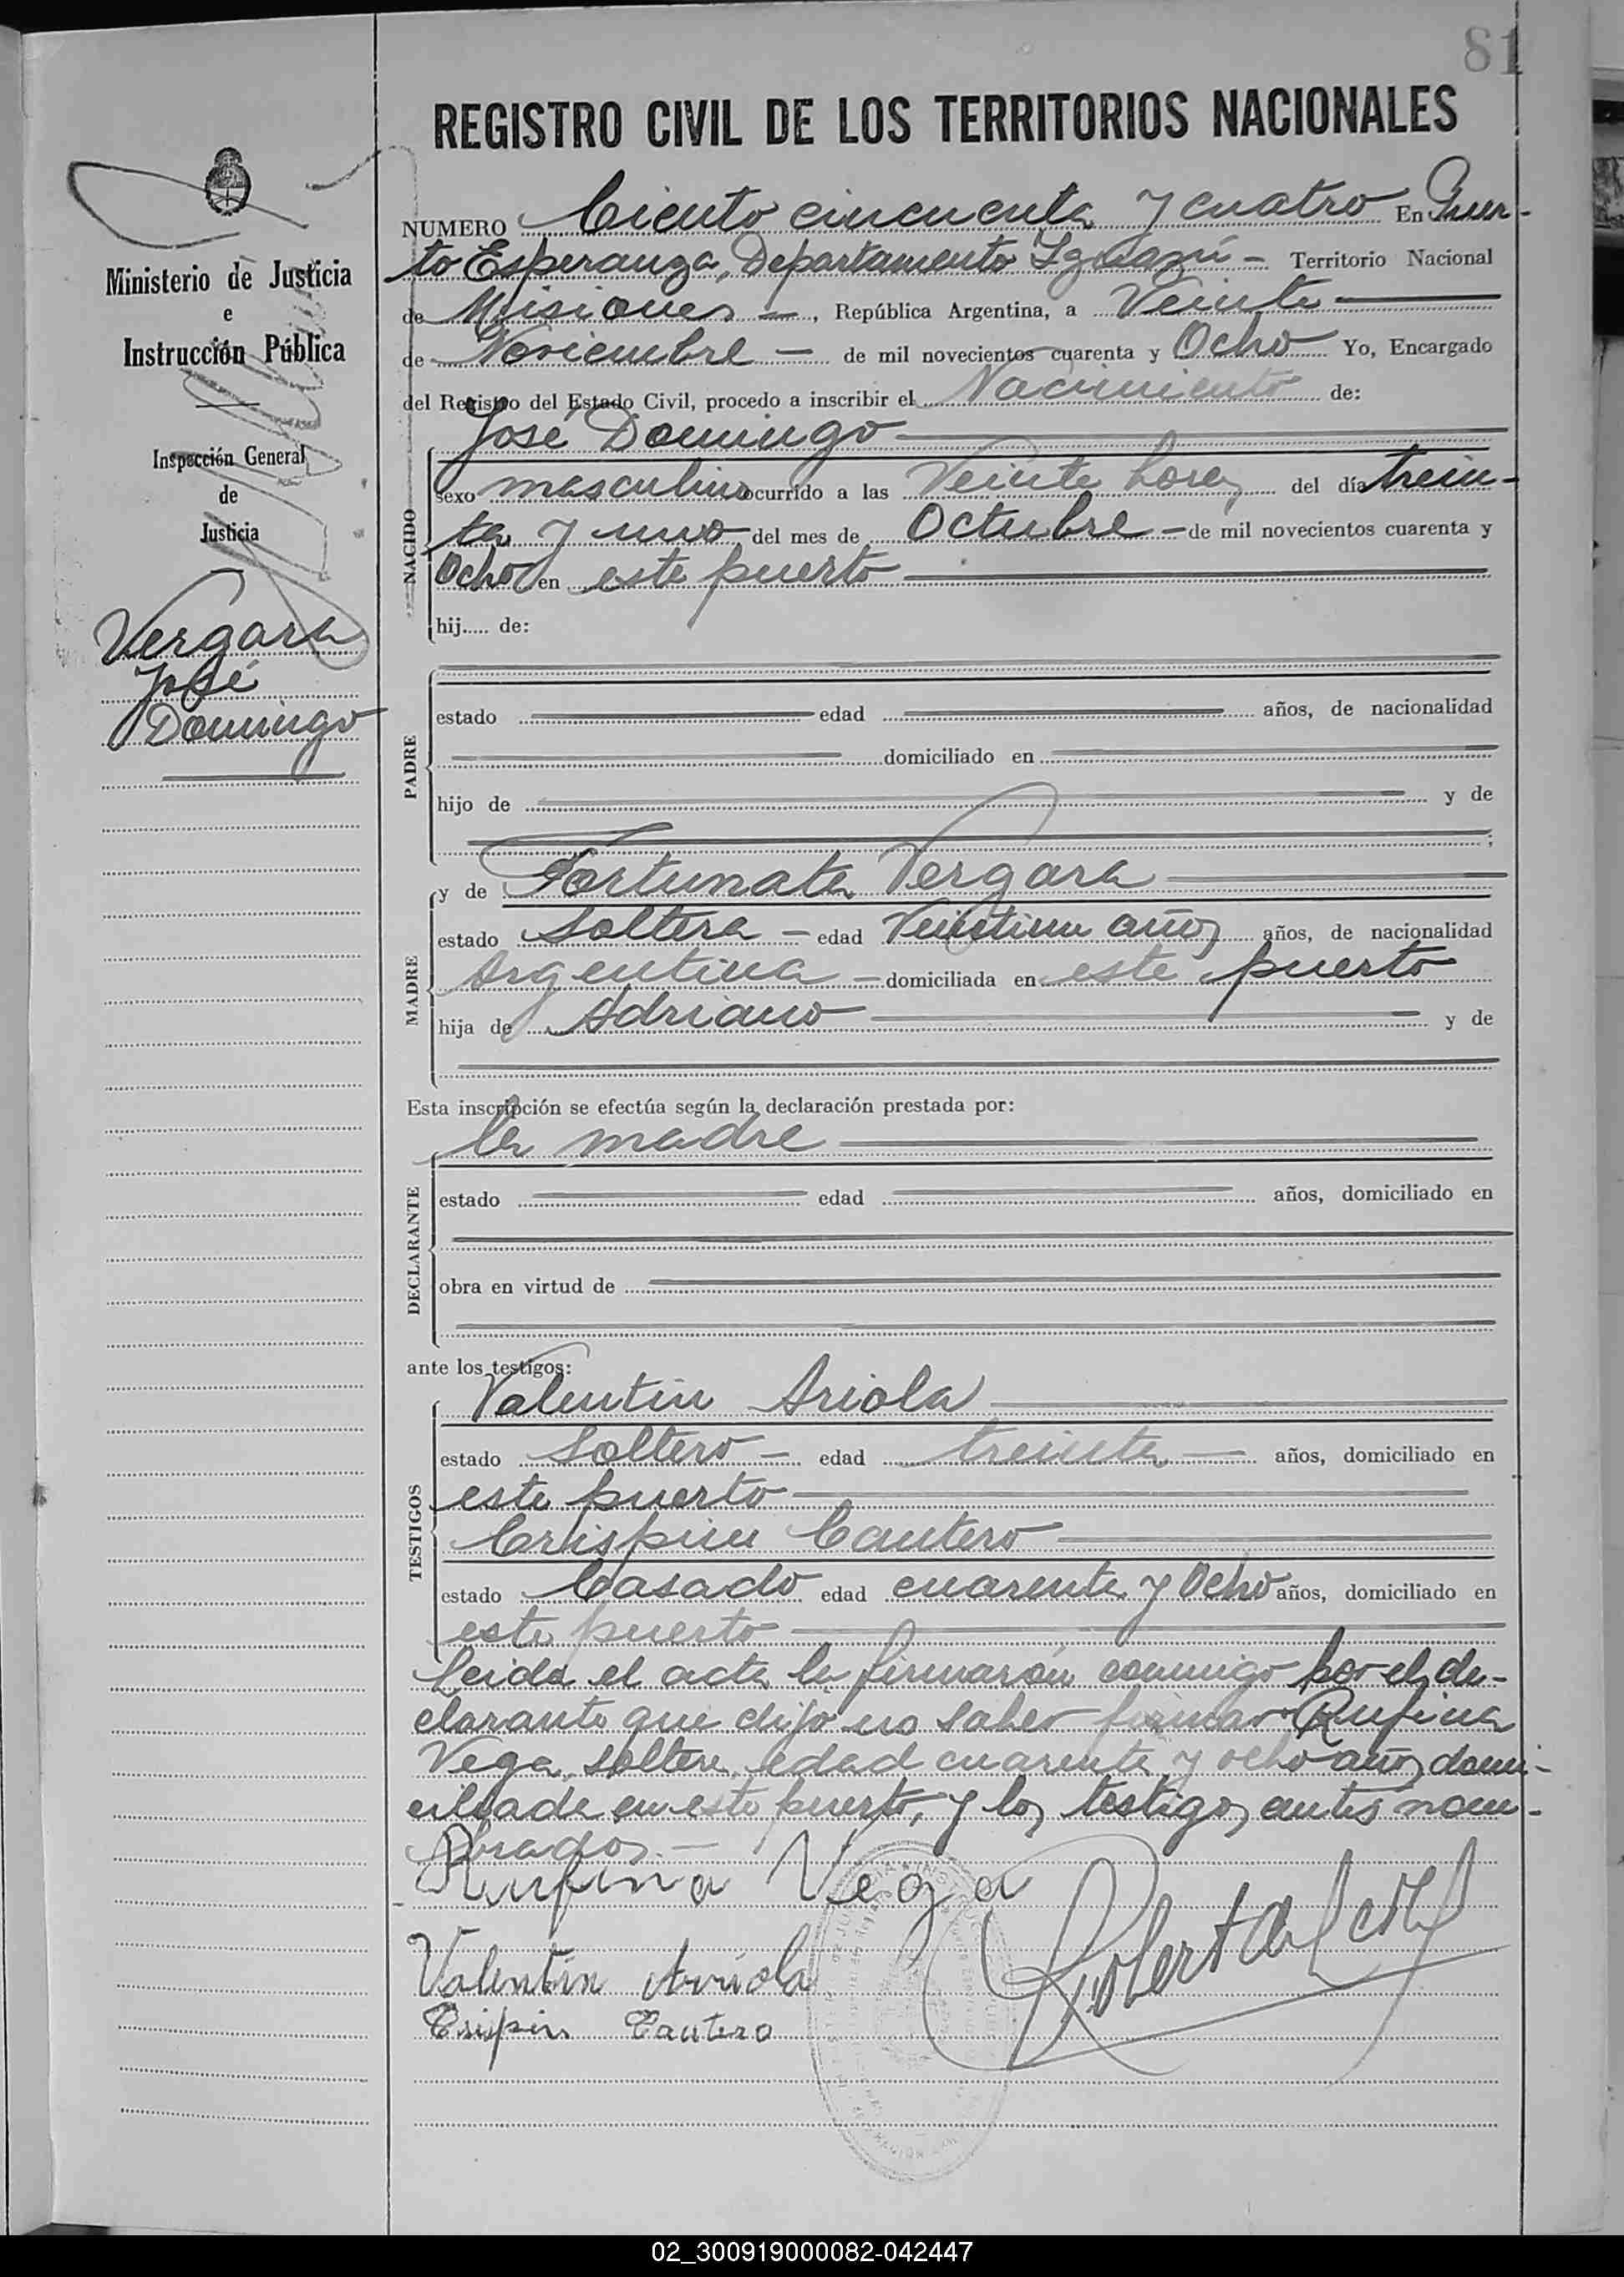 81
REGISTRO CIVIL DE LOS TERRITORIOS NACIONALES
NUMERO Ciento cincuenta y cuatro En Puer-
to Esperanza, Departamento Iguazú - Territorio Nacional
de Misiones - , República Argentina, a Veinte
de Noviembre - de mil novecientos cuarenta y Ocho Yo, Encargado
del Registro del Estado Civil, procedo a inscribir el Nacimiento de:
Ministerio de Justicia
e
Instrucción Pública
Inspección General
de
Justicia
Vergara
José
Domingo
NACIDO
José Domingo
sexo masculino ocurrido a las Veinte horas del día trein-
ta y uno del mes de Octubre - de mil novecientos cuarenta y
Ocho en este puerto
hij..... de:
PADRE
estado edad años, de nacionalidad
domiciliado en
hijo de y de
;
MADRE
y de Fortunata Vergara
estado Soltera - edad Veintiun años años, de nacionalidad
Argentina - domiciliada en este puerto
hija de Adriano y de
Esta inscripción se efectúa según la declaración prestada por:
la madre
DECLARANTE
estado edad años, domiciliado en
obra en virtud de
ante los testigos:
TESTIGOS
Valentin Ariola
estado Soltero - edad treinta años, domiciliado en
este puerto
Crispin Cantero
estado Casado edad cuarenta y Ocho años, domiciliado en
este puerto
Leida el acta la firmarón conmigo por el de-
clarante que dijo no saber firmar Rufina
Vega, soltera, edad cuarenta y ocho años domi-
ciliada en este puerto, y los testigos antes nom-
brados.-
Rufina Vega
Valentin Arriola
Crispin Cantero
02_300919000082-042447